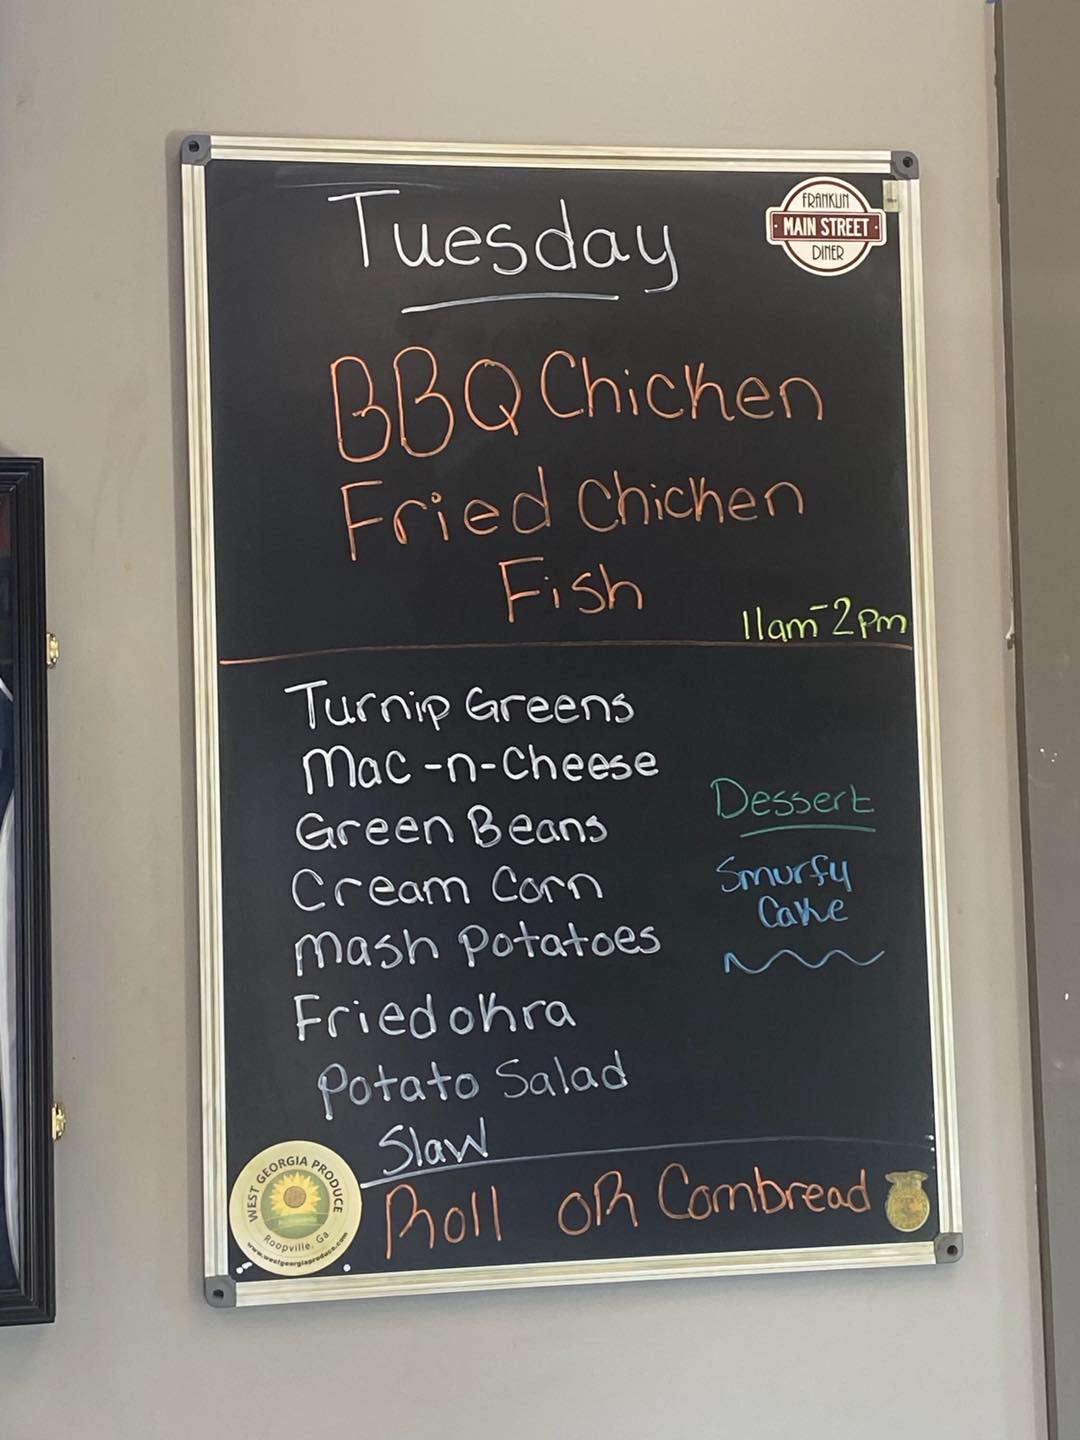 Tuesday
FRANKLIN
MAIN STREET
DINER
BBQ Chicken
Fried Chicken
Fish
11am-2pm
Turnip Greens
Mac-n-Cheese
Green Beans
Cream Corn
Mash Potatoes
Fried okra
Potato Salad
Slaw
Dessert
Smurfy
Cake
Roll OR Cornbread
WEST GEORGIA PRODUCE
Roopville, Ga
www.westgeorgiaproduce.com